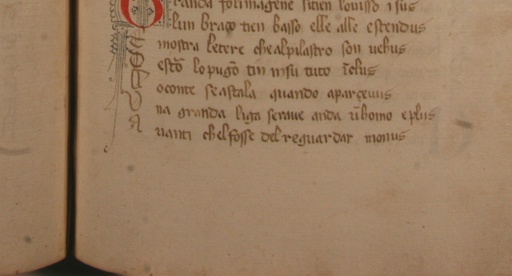 Granda fol imagene sitien lo uisso i sus
Lun braço tien basso elle alle estendus
mostra letere che alpilastro son uehus
estõ lo pugõ tin insu tuto ĩclus
o conte se astala quando aparceuus
na granda liga seraue anda ũ homo e plus
uanti chel fosse del reguardar monus